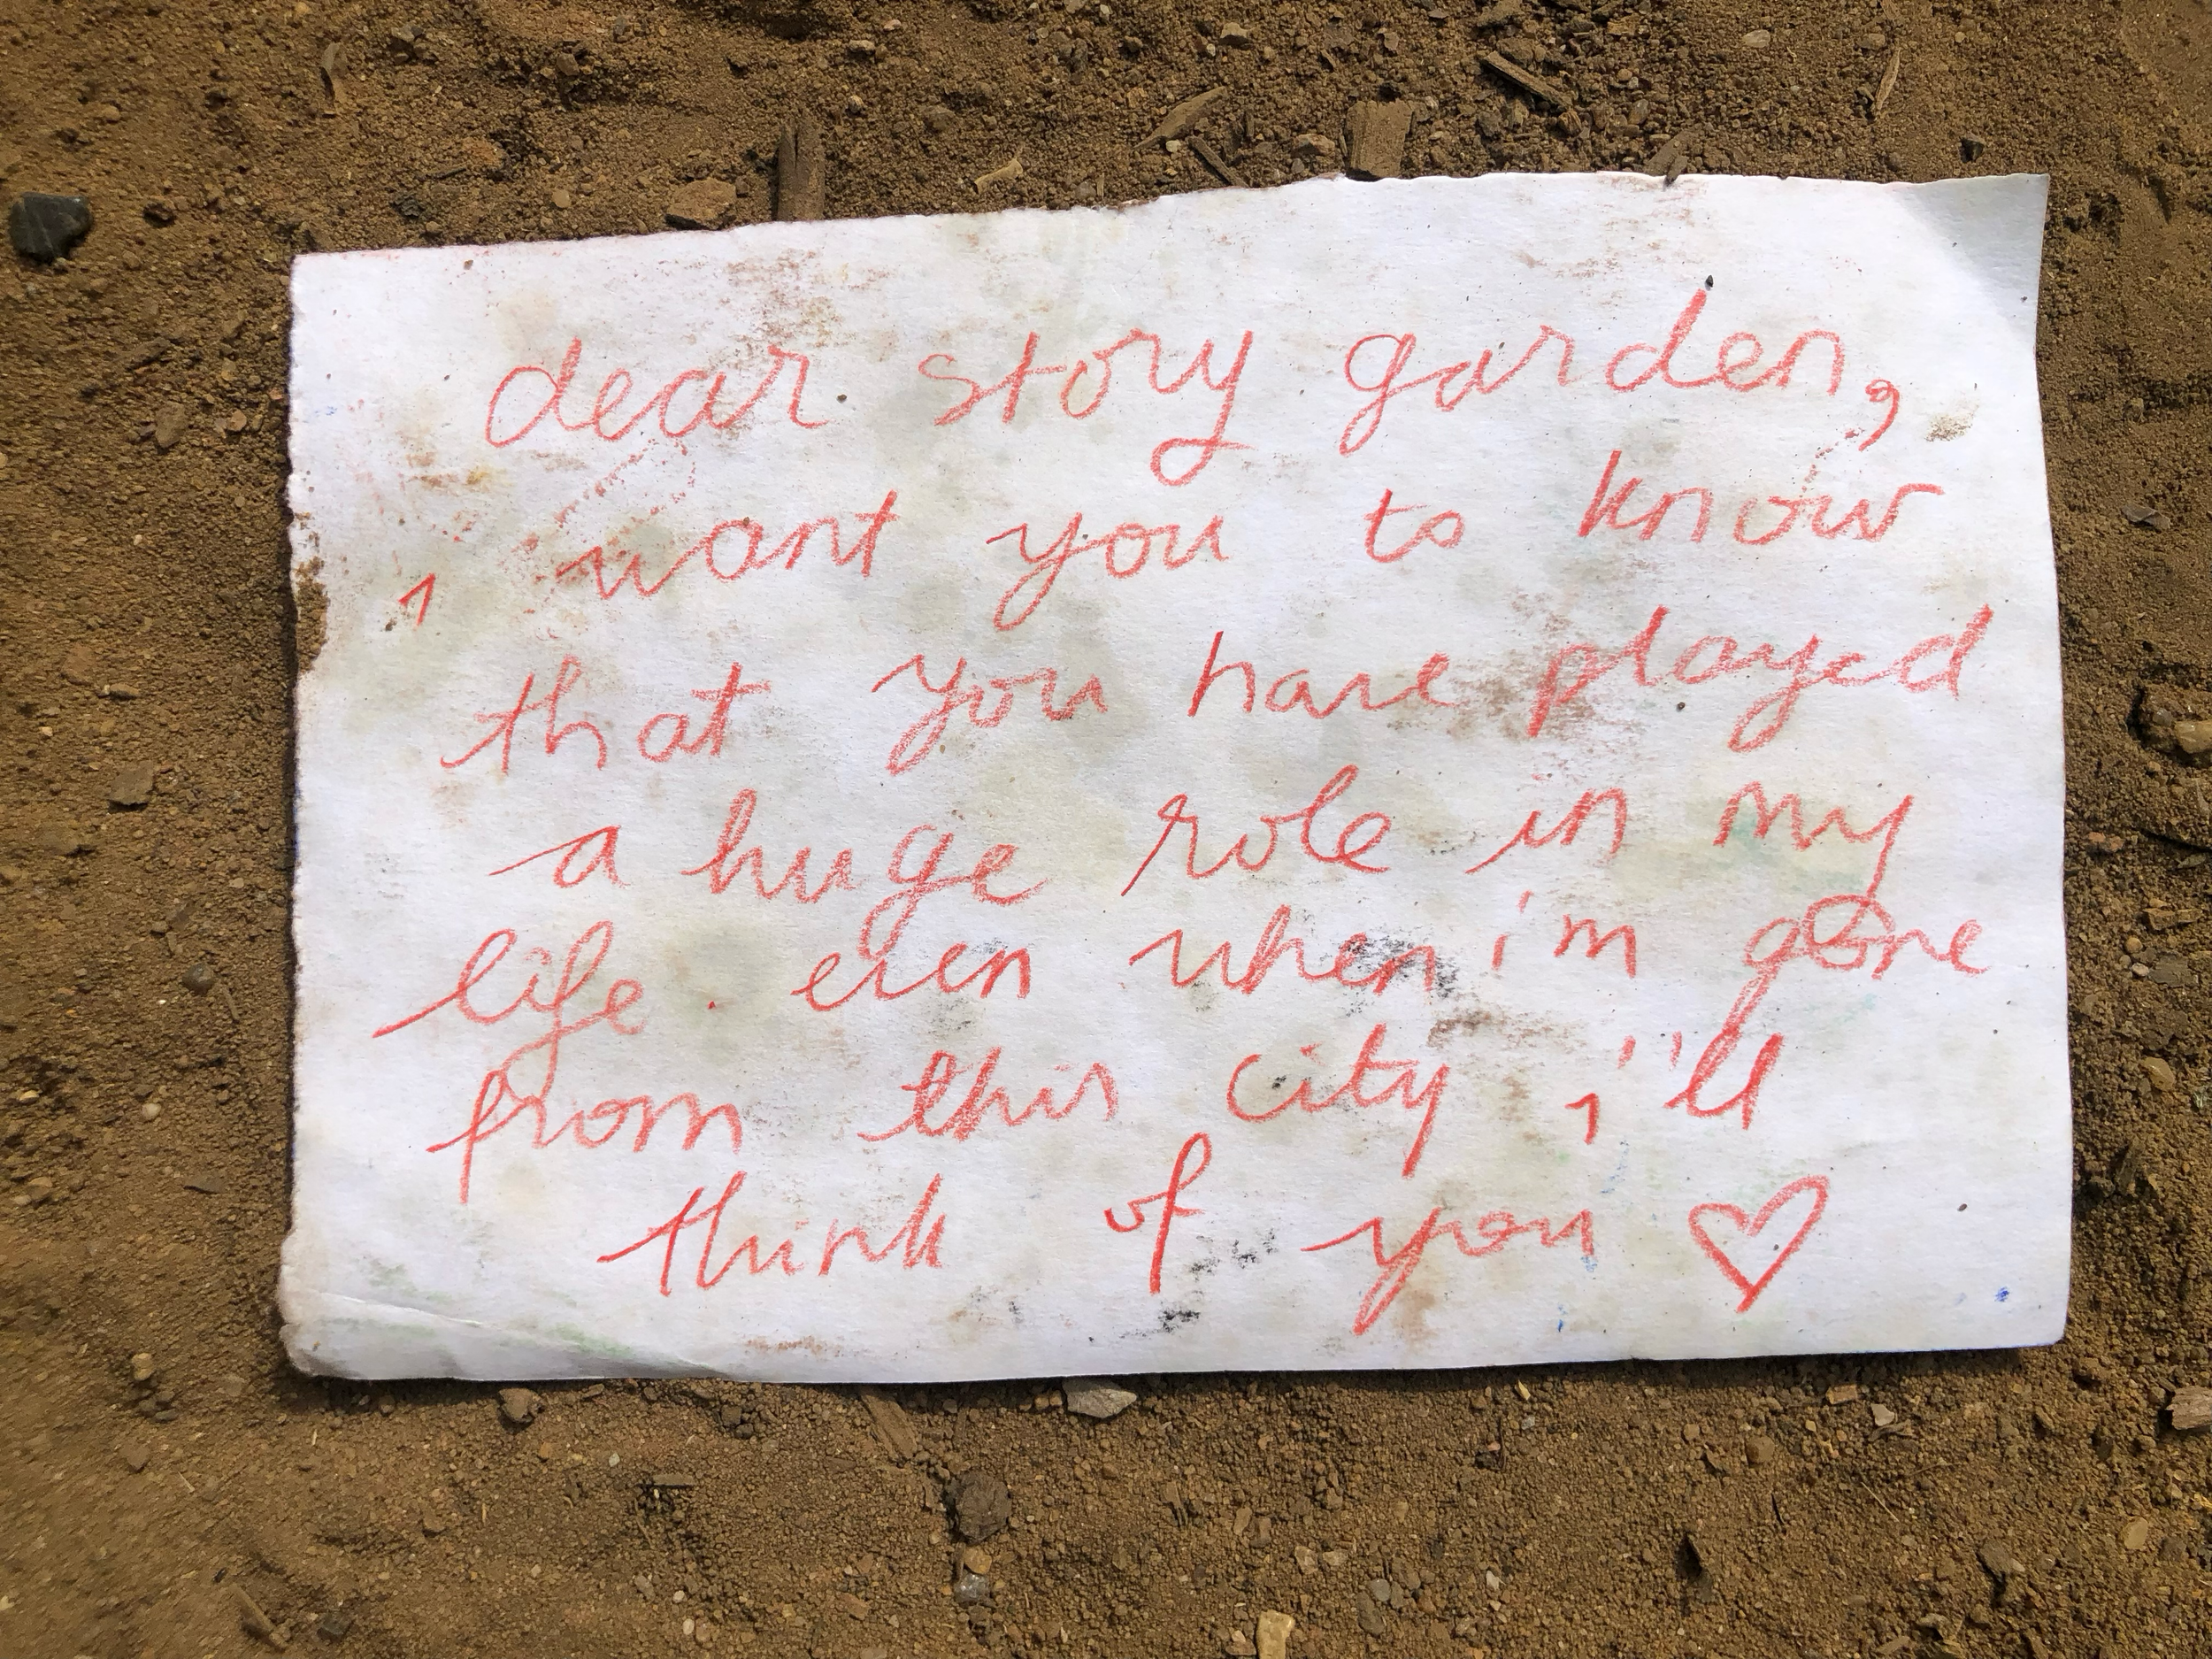 dear story garden,
i want you to know
that you have played
a huge role in my
life. even when i'm gone
from this city i'll
think of you ♡